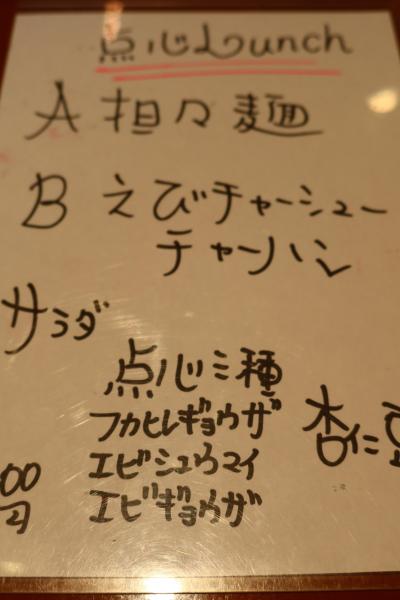 点心Lunch
A 担々麺
B えびチャーシュー
チャーハン
サラダ
点心三種
フカヒレギョウザ
杏仁豆
エビシュウマイ
00
エビギョウザ
円